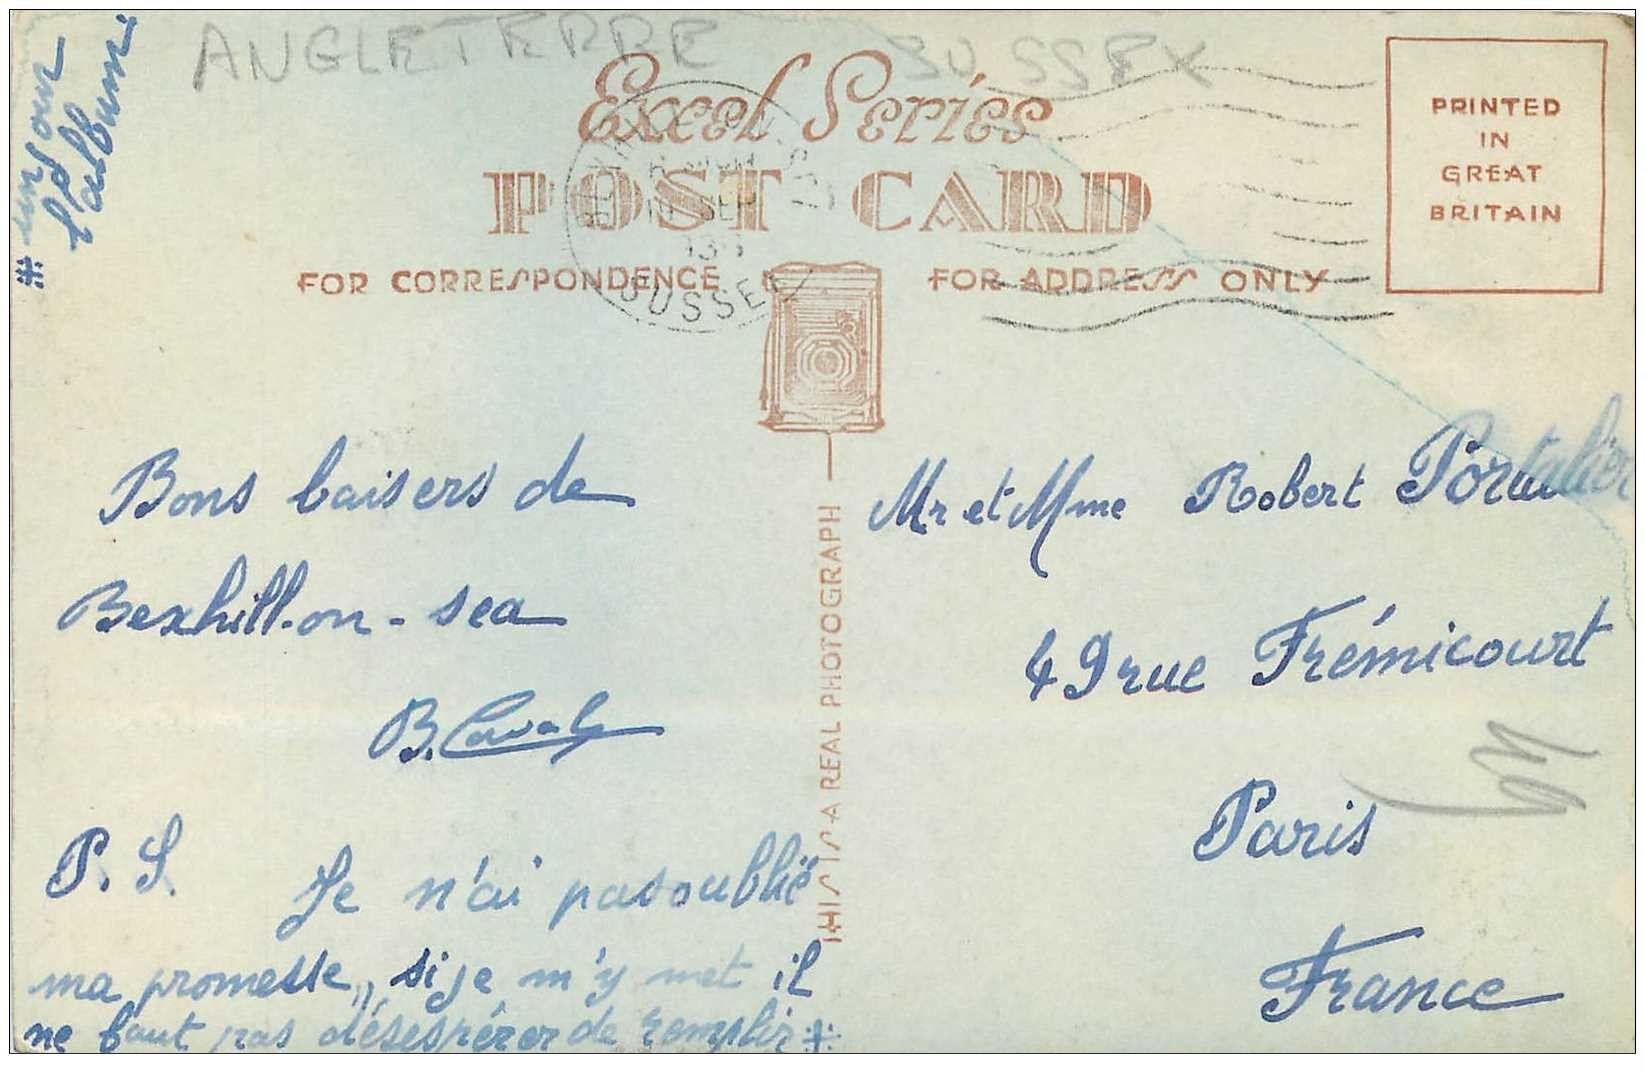 ANGLETERRE SUSSEX
Excel Series
POST CARD
FOR CORRESPONDENCE
FOR ADDRESS ONLY
PRINTED
IN
GREAT
BRITAIN
SEP
SUSSEX
THIS IS A REAL PHOTOGRAPH
Bons baisers de
Bexhill-on-sea
B.
P.S. Je n'ai pas oublié
ma promesse, si je m'y met il
ne faut pas désespérer de remplir *
* un jour
l'album
Mr et Mme Robert Portalier
49 rue Frémicourt
Paris
France